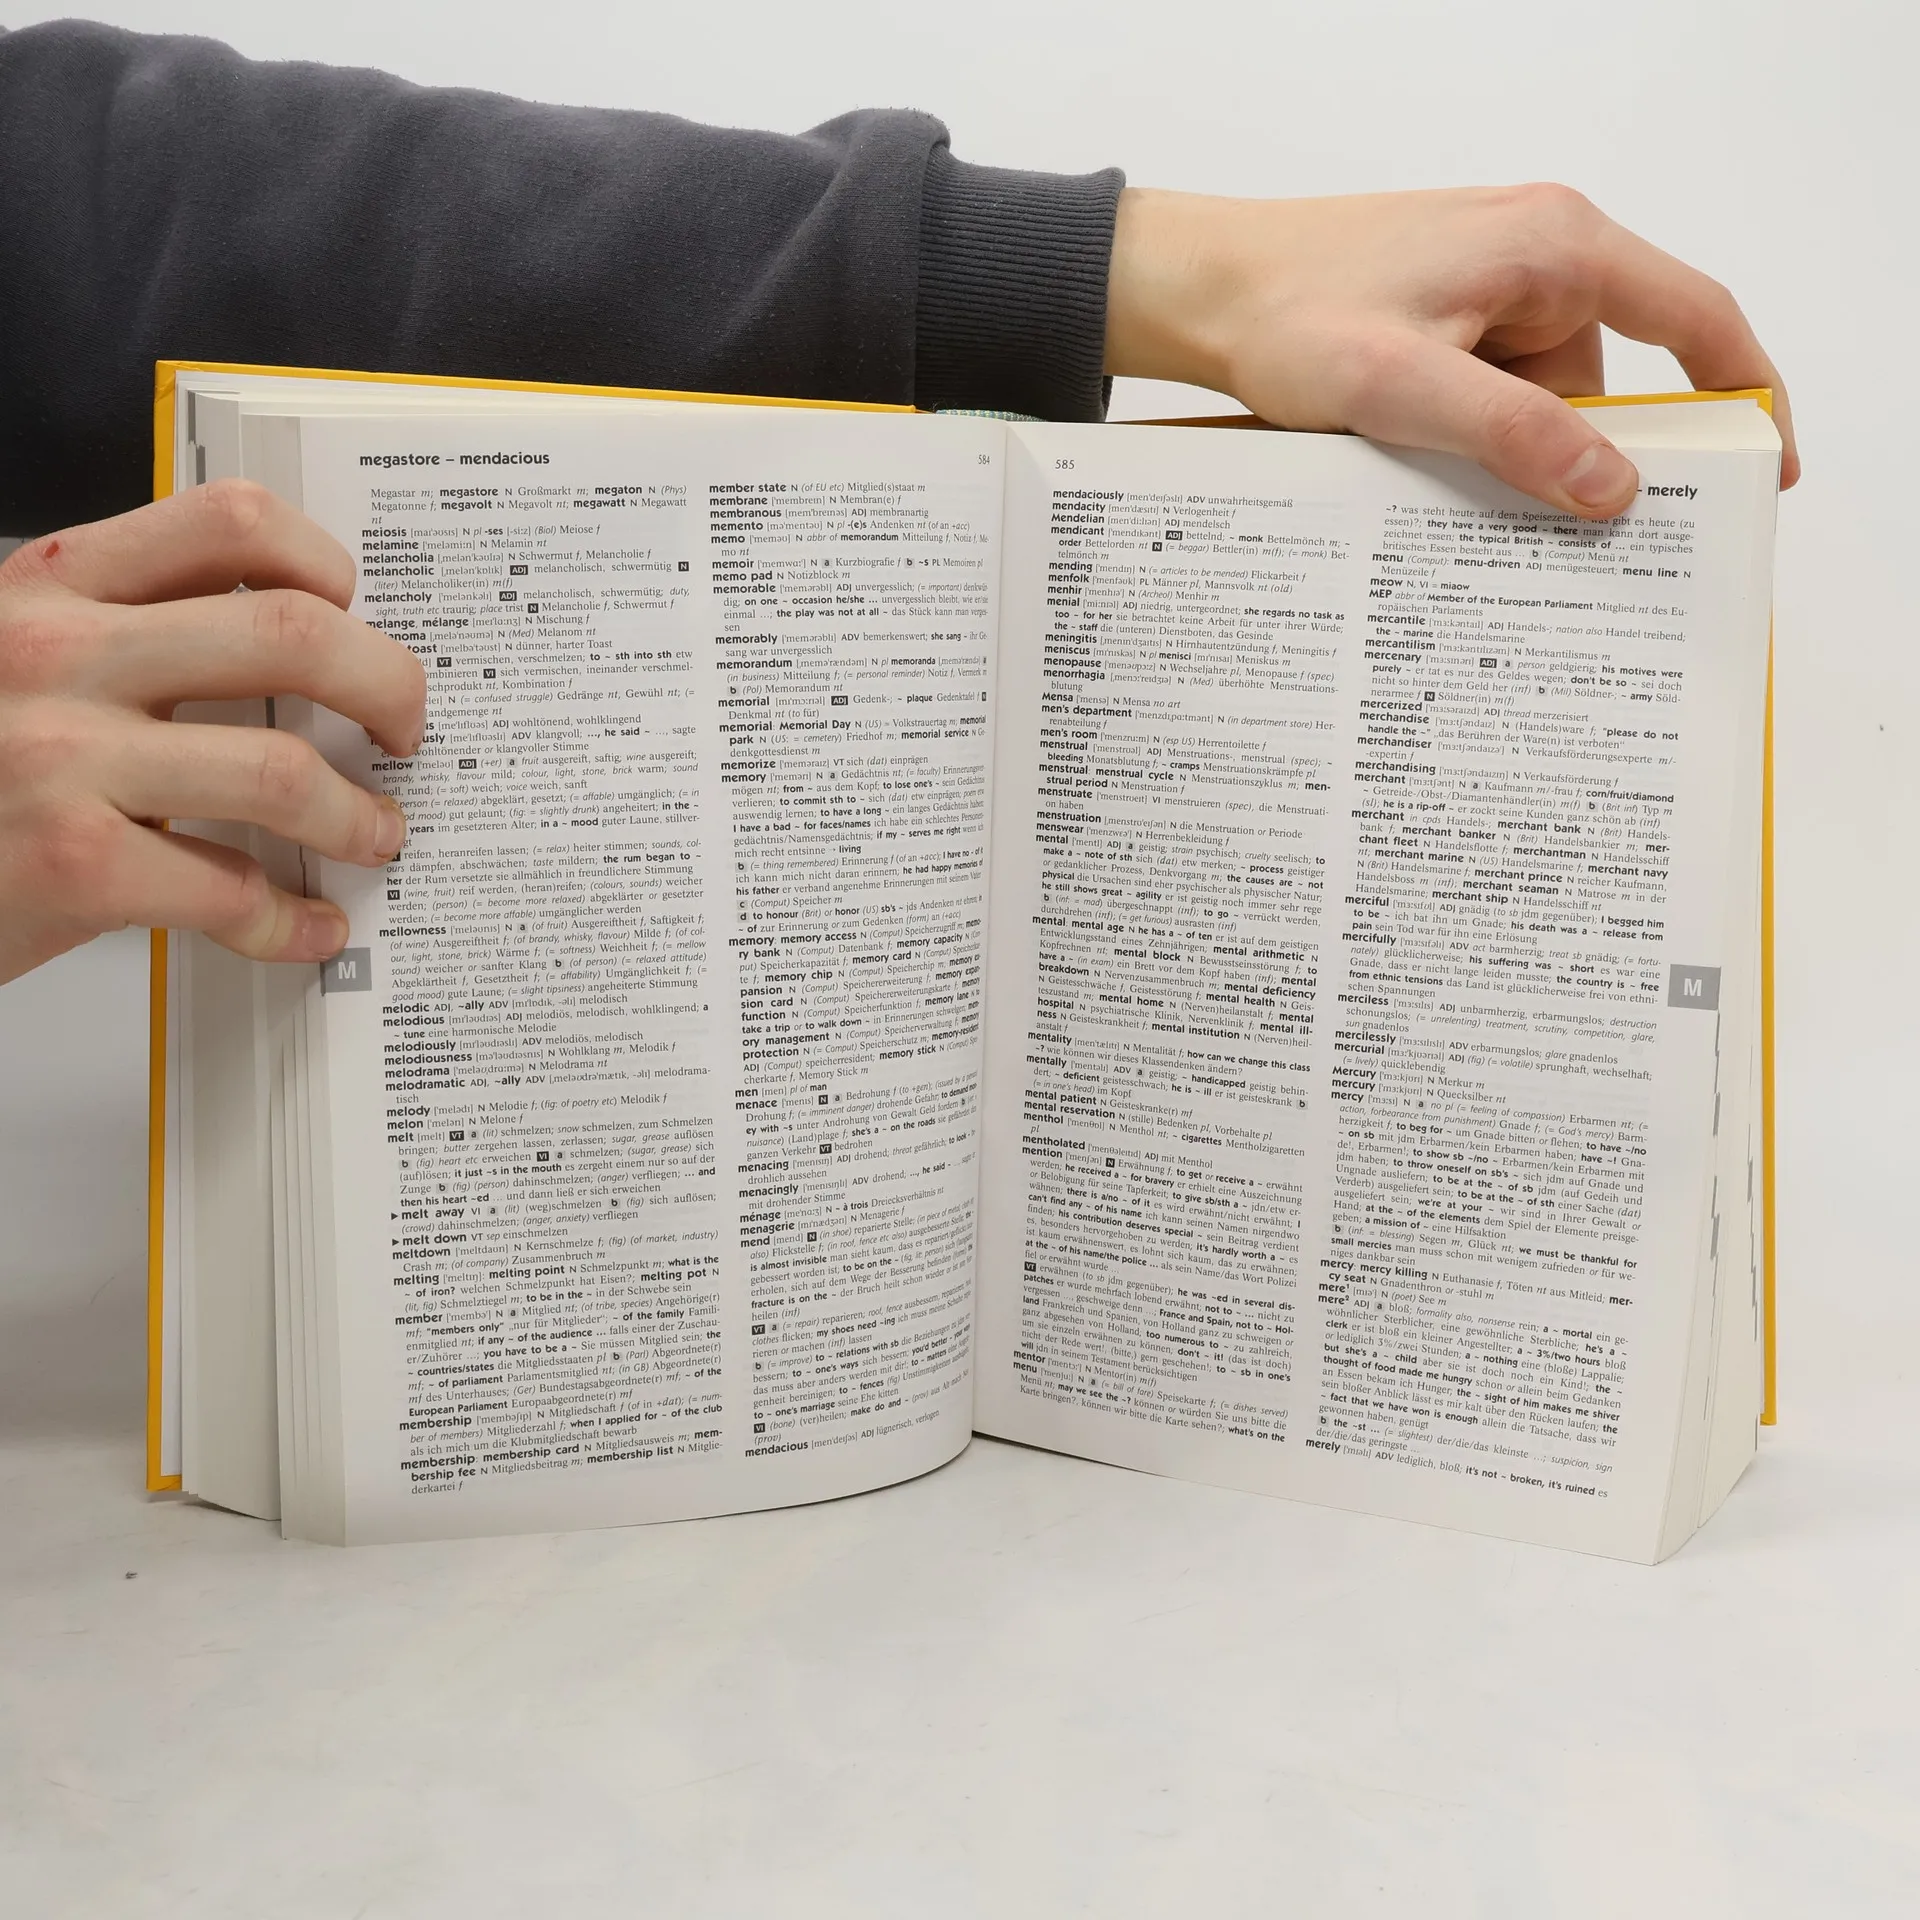 megastore – mendacious
584
Megastar m; megastore N Großmarkt m; megaton N (Phys)
Megatonne f; megavolt N Megavolt nt; megawatt N Megawatt
nt
meiosis [maɪˈəʊsɪs] N pl -ses [-siːz] (Biol) Meiose f
melamine [ˈmeləmiːn] N Melamin nt
melancholia [ˌmelənˈkəʊlɪə] N Schwermut f, Melancholie f
melancholic [ˌmelənˈkɒlɪk] ADJ melancholisch, schwermütig N
(liter) Melancholiker(in) m(f)
melancholy [ˈmelənkəlɪ] ADJ melancholisch, schwermütig; duty,
sight, truth etc traurig; place trist N Melancholie f, Schwermut f
melange, mélange [meɪˈlɑːnʒ] N Mischung f
[ˌmeləˈnəʊmə] N (Med) Melanom nt
toast [ˈmelbəˈtəʊst] N dünner, harter Toast
VT vermischen, verschmelzen; to ~ sth into sth etw
VI sich vermischen, ineinander verschmel-
nt, Kombination f
N (= confused struggle) Gedränge nt, Gewühl nt; (=
nt
[meˈlɪflʊəs] ADJ wohltönend, wohlklingend
[meˈlɪflʊəslɪ] ADV klangvoll; ..., he said ~ ..., sagte
wohltönender or klangvoller Stimme
mellow [ˈmeləʊ] ADJ (+er) a fruit ausgereift, saftig; wine ausgereift;
brandy, whisky, flavour mild; colour, light, stone, brick warm; sound
voll, rund; (= soft) weich; voice weich, sanft
person (= relaxed) abgeklärt, gesetzt; (= affable) umgänglich; (= in
mood) gut gelaunt; (fig: = slightly drunk) angeheitert; in the ~
years im gesetzteren Alter; in a ~ mood guter Laune, stillver-
reifen, heranreifen lassen; (= relax) heiter stimmen; sounds, col-
ours dämpfen, abschwächen; taste mildern; the rum began to ~
her der Rum versetzte sie allmählich in freundlichere Stimmung
VI (wine, fruit) reif werden, (heran)reifen; (colours, sounds) weicher
werden; (person) (= become more relaxed) abgeklärter or gesetzter
werden; (= become more affable) umgänglicher werden
mellowness [ˈmeləʊnɪs] N a (of fruit) Ausgereiftheit f, Saftigkeit f;
(of wine) Ausgereiftheit f; (of brandy, whisky, flavour) Milde f; (of col-
our, light, stone, brick) Wärme f; (of sound) Weichheit f; (= mellow
sound) weicher or sanfter Klang b (of person) (= relaxed attitude)
Abgeklärtheit f, Gesetztheit f; (= affability) Umgänglichkeit f; (=
good mood) gute Laune; (= slight tipsiness) angeheiterte Stimmung
melodic ADJ, ~ally ADV [mɪˈlɒdɪk, -əlɪ] melodisch
melodious [mɪˈləʊdɪəs] ADJ melodiös, melodisch, wohlklingend; a
~ tune eine harmonische Melodie
melodiously [mɪˈləʊdɪəslɪ] ADV melodiös, melodisch
melodiousness [məˈləʊdɪəsnɪs] N Wohlklang m, Melodik f
melodrama [ˈmeləʊˌdrɑːmə] N Melodrama nt
melodramatic ADJ, ~ally ADV [ˌmeləʊdrəˈmætɪk, -əlɪ] melodrama-
tisch
melody [ˈmelədɪ] N Melodie f; (fig: of poetry etc) Melodik f
melon [ˈmelən] N Melone f
melt [melt] VT a (lit) schmelzen; snow schmelzen, zum Schmelzen
bringen; butter zergehen lassen, zerlassen; sugar, grease auflösen
b (fig) heart etc erweichen VI a schmelzen; (sugar, grease) sich
(auf)lösen; it just ~s in the mouth es zergeht einem nur so auf der
Zunge b (fig) (person) dahinschmelzen; (anger) verfliegen; ... and
then his heart ~ed ... und dann ließ er sich erweichen
▶ melt away VI a (lit) (weg)schmelzen b (fig) sich auflösen;
(crowd) dahinschmelzen; (anger, anxiety) verfliegen
▶ melt down VT sep einschmelzen
meltdown [ˈmeltdaʊn] N Kernschmelze f; (fig) (of market, industry)
Crash m; (of company) Zusammenbruch m
melting [ˈmeltɪŋ]: melting point N Schmelzpunkt m; what is the
~ of iron? welchen Schmelzpunkt hat Eisen?; melting pot N
(lit, fig) Schmelztiegel m; to be in the ~ in der Schwebe sein
member [ˈmembəʳ] N a Mitglied nt; (of tribe, species) Angehörige(r)
mf; "members only" „nur für Mitglieder“; ~ of the family Famili-
enmitglied nt; if any ~ of the audience ... falls einer der Zuschau-
er/Zuhörer ...; you have to be a ~ Sie müssen Mitglied sein; the
~ countries/states die Mitgliedsstaaten pl b (Parl) Abgeordnete(r)
mf; ~ of parliament Parlamentsmitglied nt; (in GB) Abgeordnete(r)
mf des Unterhauses; (Ger) Bundestagsabgeordnete(r) mf; ~ of the
European Parliament Europaabgeordnete(r) mf
membership [ˈmembəʃɪp] N Mitgliedschaft f (of in +dat); (= num-
ber of members) Mitgliederzahl f; when I applied for ~ of the club
als ich mich um die Klubmitgliedschaft bewarb
membership: membership card N Mitgliedsausweis m; mem-
bership fee N Mitgliedsbeitrag m; membership list N Mitglie-
derkartei f
M
member state N (of EU etc) Mitglied(s)staat m
membrane [ˈmembreɪn] N Membran(e) f
membranous [memˈbreɪnəs] ADJ membranartig
memento [məˈmentəʊ] N pl -(e)s Andenken nt (of an +acc)
memo [ˈmeməʊ] N abbr of memorandum Mitteilung f, Notiz f, Me
mo nt
memoir [ˈmemwɑːʳ] N a Kurzbiografie f b ~s PL Memoiren pl
memo pad N Notizblock m
memorable [ˈmemərəbl] ADJ unvergesslich; (= important) denkwür
dig; on one ~ occasion he/she ... unvergesslich bleibt, wie er/sie
einmal ...; the play was not at all ~ das Stück kann man verges-
sen
memorably [ˈmemərəblɪ] ADV bemerkenswert; she sang ~ ihr Ge
sang war unvergesslich
memorandum [ˌmeməˈrændəm] N pl memoranda
(in business) Mitteilung f; (= personal reminder) Notiz f, Vermerk m
b (Pol) Memorandum nt
memorial [mɪˈmɔːrɪəl] ADJ Gedenk-; ~ plaque Gedenktafel f N
Denkmal nt (to für)
memorial: Memorial Day N (US) ≈ Volkstrauertag m; memorial
park N (US: = cemetery) Friedhof m; memorial service N Ge-
denkgottesdienst m
memorize [ˈmeməraɪz] VT sich (dat) einprägen
memory [ˈmemərɪ] N a Gedächtnis nt; (= faculty) Erinnerungsver-
mögen nt; from ~ aus dem Kopf; to lose one's ~ sein Gedächtnis
verlieren; to commit sth to ~ sich (dat) etw einprägen; poem etw
auswendig lernen; to have a long ~ ein langes Gedächtnis haben;
I have a bad ~ for faces/names ich habe ein schlechtes Personen-
gedächtnis/Namensgedächtnis; if my ~ serves me right wenn ich
mich recht entsinne → living
b (= thing remembered) Erinnerung f (of an +acc); I have no ~ of it
ich kann mich nicht daran erinnern; he had happy memories of
his father er verband angenehme Erinnerungen mit seinem Vater
c (Comput) Speicher m
d to honour (Brit) or honor (US) sb's ~ jds Andenken nt ehren; in
~ of zur Erinnerung or zum Gedenken (form) an (+acc)
memory: memory access N (Comput) Speicherzugriff m; memo-
ry bank N (Comput) Datenbank f; memory capacity N (Com-
put) Speicherkapazität f; memory card N (Comput) Speicherkar-
te f; memory chip N (Comput) Speicherchip m; memory ex-
pansion N (Comput) Speichererweiterung f; memory expan-
sion card N (Comput) Speichererweiterungskarte f; memory
function N (Comput) Speicherfunktion f; memory lane N to
take a trip or to walk down ~ in Erinnerungen schwelgen; mem-
ory management N (Comput) Speicherverwaltung f; memory
protection N (= Comput) Speicherschutz m; memory-resident
ADJ (Comput) speicherresident; memory stick N (Comput) Spei-
cherkarte f, Memory Stick m
men [men] pl of man
menace [ˈmenɪs] N a Bedrohung f (to +gen); (issued by a person)
Drohung f; (= imminent danger) drohende Gefahr; to demand mon-
ey with ~s unter Androhung von Gewalt Geld fordern b (inf: =
nuisance) (Land)plage f; she's a ~ on the roads sie gefährdet den
ganzen Verkehr VT bedrohen
menacing [ˈmenɪsɪŋ] ADJ drohend; threat gefährlich; to look ~ be-
drohlich aussehen
menacingly [ˈmenɪsɪŋlɪ] ADV drohend; ..., he said ~ ..., sagte er
mit drohender Stimme
ménage [meˈnɑːʒ] N ~ à trois Dreiecksverhältnis nt
menagerie [mɪˈnædʒərɪ] N Menagerie f
mend [mend] N (in shoe) reparierte Stelle; (in piece of metal, cloth
also) Flickstelle f; (in roof, fence etc also) ausgebesserte Stelle; the ~
is almost invisible man sieht kaum, dass es repariert/geflickt/aus-
gebessert worden ist; to be on the ~ (fig, lit: person) sich
erholen, sich auf dem Wege der Besserung befinden (form); the
fracture is on the ~ der Bruch heilt schon wieder or ist am Ver-
heilen (inf)
VT a (= repair) reparieren; roof, fence ausbessern, reparieren;
clothes flicken; my shoes need ~ing ich muss meine Schuhe repa-
rieren or machen (inf) lassen
b (= improve) to ~ relations with sb die Beziehungen zu jdm ver-
bessern; to ~ one's ways sich bessern; you'd better ~ your ways
das muss aber anders werden mit dir!; to ~ matters
genheit bereinigen; to ~ fences (fig) Unstimmigkeiten ausbügeln
to ~ one's marriage seine Ehe kitten
VI (bone) (ver)heilen; make do and ~ (prov) aus Alt mach Neu
(prov)
mendacious [menˈdeɪʃəs] ADJ lügnerisch, verlogen
585
– merely
mendaciously [menˈdeɪʃəslɪ] ADV unwahrheitsgemäß
mendacity [menˈdæsɪtɪ] N Verlogenheit f
Mendelian [menˈdiːlɪən] ADJ mendelsch
mendicant [ˈmendɪkənt] ADJ bettelnd; ~ monk Bettelmönch m; ~
order Bettelorden nt N (= beggar) Bettler(in) m(f); (= monk) Bet-
telmönch m
mending [ˈmendɪŋ] N (= articles to be mended) Flickarbeit f
menfolk [ˈmenfəʊk] PL Männer pl, Mannsvolk nt (old)
menhir [ˈmenhɪəʳ] N (Archeol) Menhir m
menial [ˈmiːnɪəl] ADJ niedrig, untergeordnet; she regards no task as
too ~ for her sie betrachtet keine Arbeit für unter ihrer Würde;
the ~ staff die (unteren) Dienstboten, das Gesinde
meningitis [ˌmenɪnˈdʒaɪtɪs] N Hirnhautentzündung f, Meningitis f
meniscus [mɪˈnɪskəs] N pl menisci [mɪˈnɪsaɪ] Meniskus m
menopause [ˈmenəʊpɔːz] N Wechseljahre pl, Menopause f (spec)
menorrhagia [ˌmenɔːˈreɪdʒɪə] N (Med) überhöhte Menstruations-
blutung f
Mensa [ˈmensə] N Mensa no art
men's department [ˈmenzdɪˌpɑːtmənt] N (in department store) Her-
renabteilung f
men's room [ˈmenzruːm] N (esp US) Herrentoilette f
menstrual [ˈmenstrʊəl] ADJ Menstruations-, menstrual (spec); ~
bleeding Monatsblutung f; ~ cramps Menstruationskrämpfe pl
menstrual: menstrual cycle N Menstruationszyklus m; men-
strual period N Menstruation f
menstruate [ˈmenstrʊeɪt] VI menstruieren (spec), die Menstruati-
on haben
menstruation [ˌmenstrʊˈeɪʃən] N die Menstruation or Periode
menswear [ˈmenzwɛəʳ] N Herrenbekleidung f
mental [ˈmentl] ADJ a geistig; strain psychisch; cruelty seelisch; to
make a ~ note of sth sich (dat) etw merken; ~ process geistiger
or gedanklicher Prozess, Denkvorgang m; the causes are ~ not
physical die Ursachen sind eher psychischer als physischer Natur;
he still shows great ~ agility er ist geistig noch immer sehr rege
b (inf: = mad) übergeschnappt (inf); to go ~ verrückt werden,
durchdrehen (inf); (= get furious) ausrasten (inf)
mental: mental age N he has a ~ of ten er ist auf dem geistigen
Entwicklungsstand eines Zehnjährigen; mental arithmetic N
Kopfrechnen nt; mental block N Bewusstseinsstörung f; to
have a ~ (in exam) ein Brett vor dem Kopf haben (inf); mental
breakdown N Nervenzusammenbruch m; mental deficiency
N Geistesschwäche f, Geistesstörung f; mental health N Geis-
teszustand m; mental home N (Nerven)heilanstalt f; mental
hospital N psychiatrische Klinik, Nervenklinik f; mental ill-
ness N Geisteskrankheit f; mental institution N (Nerven)heil-
anstalt f
mentality [menˈtælɪtɪ] N Mentalität f; how can we change this class
~? wie können wir dieses Klassendenken ändern?
mentally [ˈmentəlɪ] ADV a geistig; ~ handicapped geistig behin-
dert; ~ deficient geistesschwach; he is ~ ill er ist geisteskrank b
(= in one's head) im Kopf
mental patient N Geisteskranke(r) mf
mental reservation N (stille) Bedenken pl, Vorbehalte pl
menthol [ˈmenθɒl] N Menthol nt; ~ cigarettes Mentholzigaretten
pl
mentholated [ˈmenθəleɪtɪd] ADJ mit Menthol
mention [ˈmenʃən] N Erwähnung f; to get or receive a ~ erwähnt
werden; he received a ~ for bravery er erhielt eine Auszeichnung
or Belobigung für seine Tapferkeit; to give sb/sth a ~ jdn/etw er-
wähnen; there is a/no ~ of it es wird erwähnt/nicht erwähnt; I
can't find any ~ of his name ich kann seinen Namen nirgendwo
finden; his contribution deserves special ~ sein Beitrag verdient
es, besonders hervorgehoben zu werden; it's hardly worth a ~ es
ist kaum erwähnenswert, es lohnt sich kaum, das zu erwähnen;
at the ~ of his name/the police ... als sein Name/das Wort Polizei
fiel or erwähnt wurde ...
VT erwähnen (to sb jdm gegenüber); he was ~ed in several dis-
patches er wurde mehrfach lobend erwähnt; not to ~ ... nicht zu
vergessen ..., geschweige denn ...; France and Spain, not to ~ Hol-
land Frankreich und Spanien, von Holland ganz zu schweigen or
ganz abgesehen von Holland; too numerous to ~ zu zahlreich,
um sie einzeln erwähnen zu können; don't ~ it! (das ist doch)
nicht der Rede wert!, (bitte,) gern geschehen!; to ~ sb in one's
will jdn in seinem Testament berücksichtigen
mentor [ˈmentɔːʳ] N Mentor(in) m(f)
menu [ˈmenjuː] N a (= bill of fare) Speisekarte f; (= dishes served)
Menü nt; may we see the ~? können or würden Sie uns bitte die
Karte bringen?, können wir bitte die Karte sehen?; what's on the
~? was steht heute auf dem Speisezettel?, was gibt es heute (zu
essen)?; they have a very good ~ there man kann dort ausge-
zeichnet essen; the typical British ~ consists of ... ein typisches
britisches Essen besteht aus ... b (Comput) Menü nt
menu (Comput): menu-driven ADJ menügesteuert; menu line N
Menüzeile f
meow N, VI = miaow
MEP abbr of Member of the European Parliament Mitglied nt des Eu-
ropäischen Parlaments
mercantile [ˈmɜːkəntaɪl] ADJ Handels-; nation also Handel treibend;
the ~ marine die Handelsmarine
mercantilism [ˈmɜːkəntɪlɪzəm] N Merkantilismus m
mercenary [ˈmɜːsɪnərɪ] ADJ a person geldgierig; his motives were
purely ~ er tat es nur des Geldes wegen; don't be so ~ sei doch
nicht so hinter dem Geld her (inf) b (Mil) Söldner-; ~ army Söld-
nerarmee f N Söldner(in) m(f)
mercerized [ˈmɜːsəraɪzd] ADJ thread merzerisiert
merchandise [ˈmɜːtʃəndaɪz] N (Handels)ware f; "please do not
handle the ~" „das Berühren der Ware(n) ist verboten“
merchandiser [ˈmɜːtʃəndaɪzəʳ] N Verkaufsförderungsexperte m/-
expertin f
merchandising [ˈmɜːtʃəndaɪzɪŋ] N Verkaufsförderung f
merchant [ˈmɜːtʃənt] N a Kaufmann m/-frau f; corn/fruit/diamond
~ Getreide-/Obst-/Diamantenhändler(in) m(f) b (Brit inf) Typ m
(sl); he is a rip-off ~ er zockt seine Kunden ganz schön ab (inf)
merchant in cpds Handels-; merchant bank N (Brit) Handels-
bank f; merchant banker N (Brit) Handelsbankier m; mer-
chant fleet N Handelsflotte f; merchantman N Handelsschiff
nt; merchant marine N (US) Handelsmarine f; merchant navy
N (Brit) Handelsmarine f; merchant prince N reicher Kaufmann,
Handelsboss m (inf); merchant seaman N Matrose m in der
Handelsmarine; merchant ship N Handelsschiff nt
merciful [ˈmɜːsɪfʊl] ADJ gnädig (to sb jdm gegenüber); I begged him
to be ~ ich bat ihn um Gnade; his death was a ~ release from
pain sein Tod war für ihn eine Erlösung
mercifully [ˈmɜːsɪfəlɪ] ADV act barmherzig; treat sb gnädig; (= fortu-
nately) glücklicherweise; his suffering was ~ short es war eine
Gnade, dass er nicht lange leiden musste; the country is ~ free
from ethnic tensions das Land ist glücklicherweise frei von ethni-
schen Spannungen
merciless [ˈmɜːsɪlɪs] ADJ unbarmherzig, erbarmungslos; destruction
schonungslos; (= unrelenting) treatment, scrutiny, competition, glare,
sun gnadenlos
mercilessly [ˈmɜːsɪlɪslɪ] ADV erbarmungslos; glare gnadenlos
mercurial [mɜːˈkjʊərɪəl] ADJ (fig) (= volatile) sprunghaft, wechselhaft;
(= lively) quicklebendig
Mercury [ˈmɜːkjʊrɪ] N Merkur m
mercury [ˈmɜːkjʊrɪ] N Quecksilber nt
mercy [ˈmɜːsɪ] N a no pl (= feeling of compassion) Erbarmen nt; (=
action, forbearance from punishment) Gnade f; (= God's mercy) Barm-
herzigkeit f; to beg for ~ um Gnade bitten or flehen; to have ~/no
~ on sb mit jdm Erbarmen/kein Erbarmen haben; have ~! Gna-
de!, Erbarmen!; to show sb ~/no ~ Erbarmen/kein Erbarmen mit
jdm haben; to throw oneself on sb's ~ sich jdm auf Gnade und
Ungnade ausliefern; to be at the ~ of sb jdm (auf Gedeih und
Verderb) ausgeliefert sein; to be at the ~ of sth einer Sache (dat)
ausgeliefert sein; we're at your ~ wir sind in Ihrer Gewalt or
Hand; at the ~ of the elements dem Spiel der Elemente preisge-
geben; a mission of ~ eine Hilfsaktion
b (inf: = blessing) Segen m, Glück nt; we must be thankful for
small mercies man muss schon mit wenigem zufrieden or für we-
niges dankbar sein
mercy: mercy killing N Euthanasie f, Töten nt aus Mitleid; mer-
cy seat N Gnadenthron or -stuhl m
mere¹ [mɪəʳ] N (poet) See m
mere² ADJ a bloß; formality also, nonsense rein; a ~ mortal ein ge-
wöhnlicher Sterblicher, eine gewöhnliche Sterbliche; he's a ~
clerk er ist bloß ein kleiner Angestellter; a ~ 3%/two hours bloß
or lediglich 3%/zwei Stunden; a ~ nothing eine (bloße) Lappalie;
but she's a ~ child aber sie ist doch noch ein Kind!; the ~
thought of food made me hungry schon or allein beim Gedanken
an Essen bekam ich Hunger; the ~ sight of him makes me shiver
sein bloßer Anblick lässt es mir kalt über den Rücken laufen; the
~ fact that we have won is enough allein die Tatsache, dass wir
gewonnen haben, genügt
b the ~st ... (= slightest) der/die/das kleinste ...; suspicion, sign
der/die/das geringste ...
merely [ˈmɪəlɪ] ADV lediglich, bloß; it's not ~ broken, it's ruined es
M